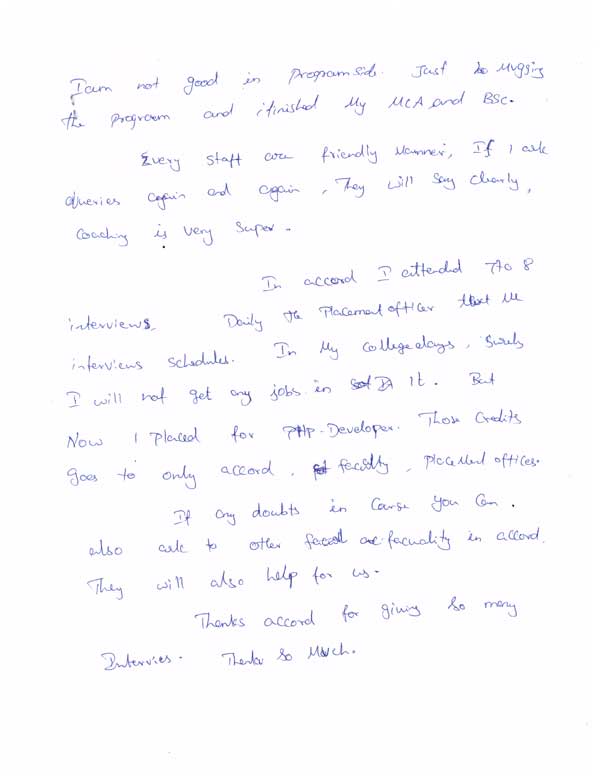 I am not good in Program side. Just so Mugging
the program and i finished My MCA and BSc.
Every staff are friendly Manner, If I ask
queries again and again, They will say clearly,
coaching is very super.
In accord I attended 7 to 8
interviews. Daily the Placement officer the
interviews schedules. In My college days, Surely
I will not get any jobs in It. But
Now I Placed for PHP-Developer. Those Credits
Goes to only accord, faculty, placement offices.
If any doubts in Course you Can.
also ask to other facuality in accord.
They will also help for us.
Thanks accord for giving So many
Intervies. Thanks So Much.